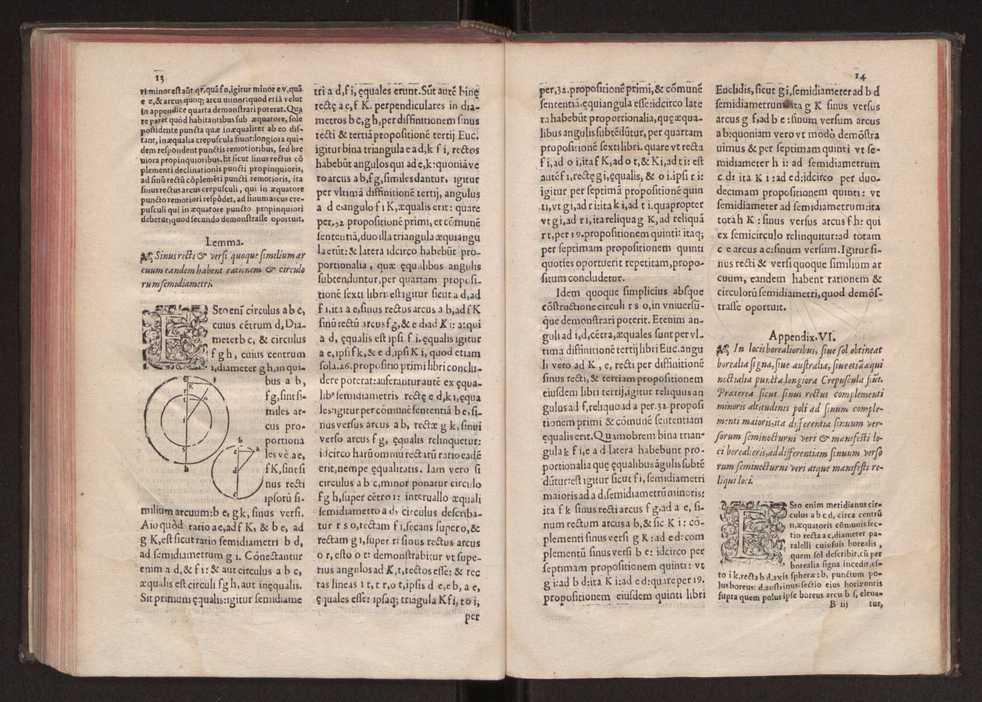 13
ri minor est aūt. qr. quā f o, igitur minor e v, quā
e z, & arcus quoq; arcu minor: quod erāt velut
in appendice quarta demonstrari poterat. Qua
re patet quòd habitantibus sub æquatore, sole
possidente puncta quæ inæqualiter ab eo distant,
inæqualia crepuscula fiunt: longiora quidem
respondent punctis remotioribus, sed breuiora
propinquioribus. Et sicut sinus rectus cō
plementi declinationis puncti propinquioris,
ad sinū rectū cōplemēti puncti remotioris, ita
sinus rectus arcus crepusculi, qui in æquatore
puncto remotiori respōdet, ad sinum arcus crepusculi
qui in æquatore puncto propinquiori
debetur, quod secundo demonstrasse oportuit.
Lemma.
Sinus recti & versi quoque similium ar
cuum eandem habent rationem & circulo
rum semidiametri.
ESto enī circulus a b c,
cuius cētrum d, Dia-
meter b c, & circulus
f g h, cuius centrum
i, diameter g h, in qui-
bus a b,
f g, sint si-
miles ar-
cus pro-
portiona
les vè a e,
f K, sint si
nus recti
ipsorū si-
milium arcuum: b e, g k, sinus versi.
Aio quòd ratio a e, ad f K, & b e, ad
g K, est sicut ratio semidiametri b d,
ad semidiametrum g i. Cōnectantur
enim a d, & f i: & aut circulus a b c,
æqualis est circuli f g h, aut inęqualis.
Sit primum ęqualis: igitur semidiame
tri a d, f i, ęquales erunt. Sūt autē līnę
rectę a e, f K. perpendiculares in dia-
metros b c, g h, per diffinitionem sinus
recti & tertiā propositionē tertij Euc.
igitur bina triangula e a d, k f i, rectos
habebūt angulos qui ad e, k: quoniā ve
rò arcus a b, f g, similes dantur, igitur
per vltimā diffinitionē tertij, angulus
a d e angulo f i K, æqualis erit: quare
per, 32. propositionē primi, et cōmunē
sententiā, duo illa triangula æquiangu
la erūt: & latera idcirco habebūt pro-
portionalia, quæ ęqualibus angulis
subtenduntur, per quartam proposi-
tionē sexti libri: est igitur sicut a d, ad
f i, ita a e, sinus rectus arcus a b, ad f K
sinū rectū arcus f g, & e d: ad K i: at qui
a d, ęqualis est ipsi f i. ęqualis igitur
a e, ipsi f k, & e d, ipsi K i, quod etiam
sola, 26. propositio primi libri conclu-
dere poterat: auferantur autē ex ęqua-
lib⁹ semidiametris rectę e d, k i, equa
les: igitur per cōmunē sententiā b e, si-
nus versus arcus a b, rectæ g k, sinui
verso arcus f g, ęqualis relinquetur:
idcirco harū omniū rectarū ratio eadē
erit, nempe ęqualitatis. Iam vero si
circulus a b c, minor ponatur circulo
f g h, super cētro i: interuallo æquali
semidiametro a d, circulus describa-
tur r s o, rectam f i, secans super o, &
rectam g i, super r: sinus rectus arcus
o r, esto o t: demonstrabitur vt supe-
rius angulos ad K, t, rectos esse: & rec
tas lineas i t, t r, o t, ipsis d e, e b, a e,
ęquales esse: ipsaq; triangula K f i, t o i,
per
14
per, 32. propositionē primi, & cōmunē
sententiā ęquiangula esse: idcirco late
ra habebūt proportionalia, quę æqua-
libus angulis subtēdūtur, per quartam
propositionē sexti libri. quare vt recta
f i, ad o i, ita f K, ad o t, & K i, ad t i: est
autē f i, rectę g i, ęqualis, & o i. ipsi r i:
igitur per septimā propositionē quin
ti, vt g i, ad r i: ita k i, ad t i. quapropter
vt g i, ad r i, ita reliqua g K, ad reliquā
r t, per 19. propositionem quinti: itaq;
per septimam propositionem quinti
quoties oportuerit repetitam, propo-
situm concludetur.
Idem quoque simplicius absque
cōstructione circuli r s o, in vniuersū-
que demonstrari poterit. Etenim an-
guli ad i, d, cētra, æquales sunt per vl-
tima diffinitionē tertij libri Euc. angu
li vero ad K, e, recti per diffinitionē
sinus recti, & tertiam propositionem
eiusdem libri tertij, igitur reliquus an
gulus ad f, reliquo ad a per. 32. proposi
tionem primi & cōmunē sententiam
ęqualis erit. Quamobrem bina trian-
gula k f i, e a d latera habebunt pro-
portionalia que ęqualibus āgulis subtē
dūtur: est igitur sicut f i, semidiametri
maioris ad a d, semidiametrū minoris:
ita f k sinus recti arcus f g, ad a e, si-
num rectum arcus a b, & sic K i: cō-
plementi sinus versi g K: ad e d: com
plementū sinus versi b e: idcirco per
septimam propositionem quinti: vt
g i: ad b d: ita K i: ad e d: quare per 19.
propositionem eiusdem quinti libri
Euclidis, sicut g i, semidiameter ad b d
semidiametrum ita g K sinus versus
arcus g f, ad b e: sinum versum arcus
a b: quoniam vero vt modò demōstra
uimus & per septimam quinti vt se-
midiameter h i: ad semidiametrum
c d: ita K i: ad e d: idcirco per duo-
decimam propositionem quinti: vt
semidiameter ad semidiametrum: ita
tota h K: sinus versus arcus f h: qui
ex semicirculo relinquitur: ad totam
c e arcus a c: sinum versum. Igitur si-
nus recti & versi quoque similium ar
cuum, eandem habent rationem &
circulorū semidiametri, quod demōs-
trasse oportuit.
Appendix. VI.
In locis borealioribus, siue sol obtineat
borealia signa, siue australia, siue etiā æqui
noctialia puncta, longiora Crepuscula fiūt.
Præterea sicut sinus rectus complementi
minoris altitudinis poli ad sinum comple-
menti maioris: ita differentia sinuum ver-
sorum seminocturni veri & manifesti lo-
ci borealieris, ad differentiam sinuum verso
rum seminocturni veri atque manifesti re-
liqui loci.
ESto enim meridianus cir-
culus a b c d, circa centrū
n, æquatoris cōmunis sec-
tio recta a c, diameter pa-
ralelli cuiusuis borealis,
quem sol describit, cū per
borealia signa incedit, es-
to i k, recta b d, axis sphęræ: b, punctum po-
lus boreus: d, austrinus: sectio eius horizontis
supra quem polus ipse boreus arcu b f, eleua-
B iij tur,